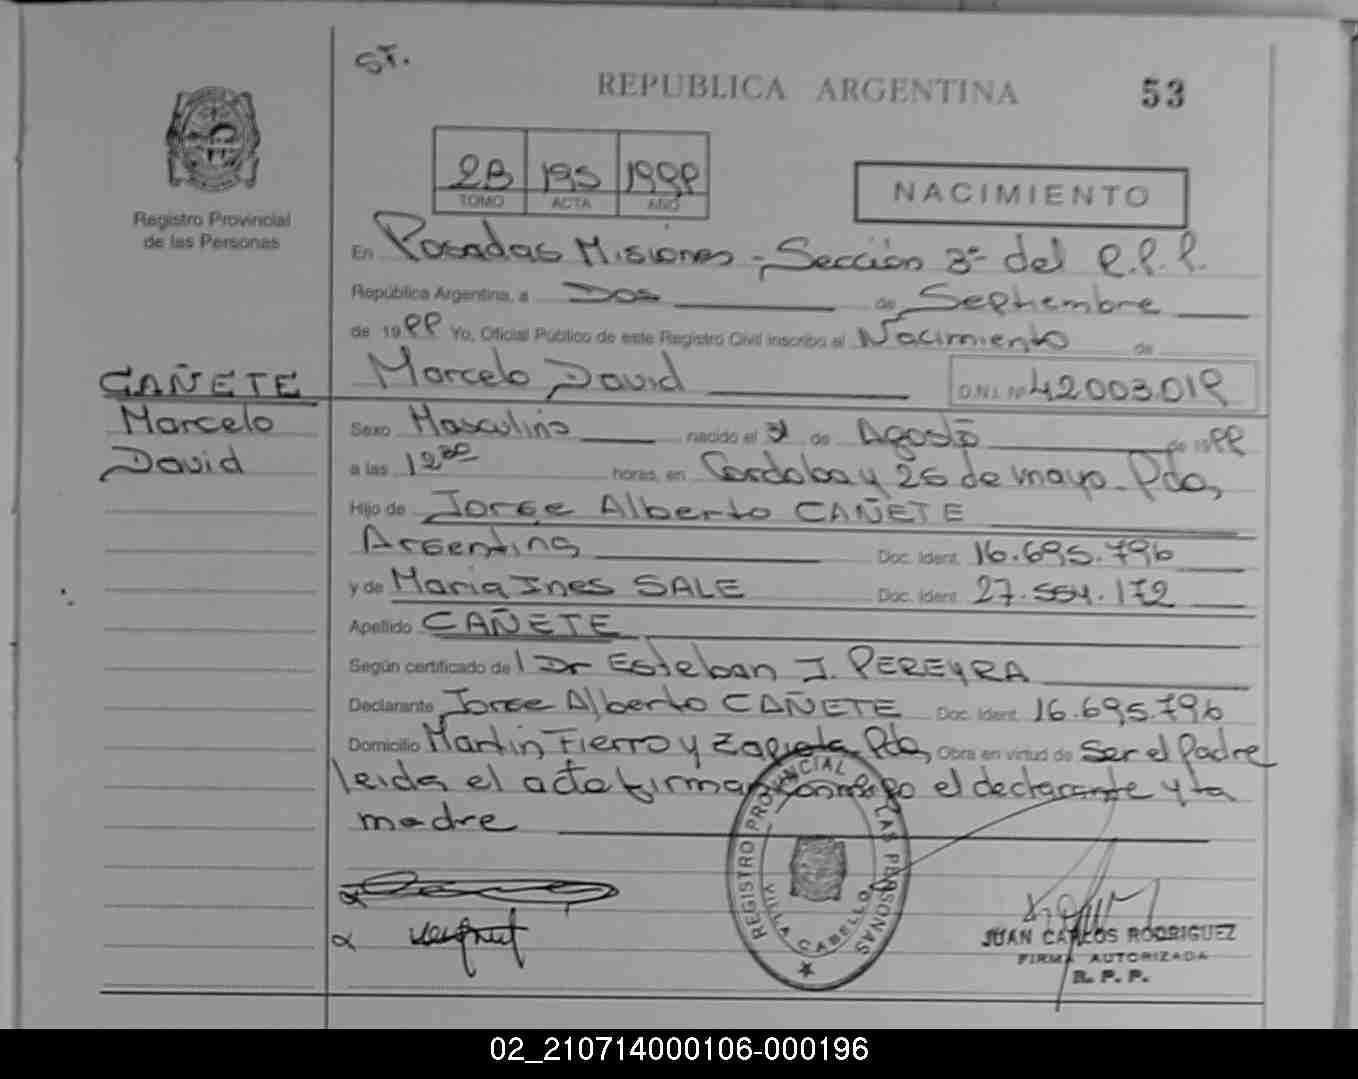 ST.
REPUBLICA ARGENTINA
53
2B 195 1999
TOMO ACTA AÑO
NACIMIENTO
Registro Provincial
de las Personas
En Posadas Misiones - Sección 3ª del R.P.P.
República Argentina, a Dos de Septiembre
de 1999 Yo, Oficial Público de este Registro Civil inscribo el Nacimiento de
Marcelo David D.N.I. Nº 42003.019
CAÑETE
Marcelo
David
Sexo Masculino nacido el 31 de Agosto de 1999
a las 12 horas, en Cordoba y 25 de mayo - Pdas,
Hijo de Jorge Alberto CAÑETE
Argentina Doc. Ident. 16.695.796
y de Maria Ines SALE Doc. Ident. 27.554.172
Apellido CAÑETE
Según certificado de l Dr Esteban J. PEREYRA
Declarante Jorge Alberto CAÑETE Doc. Ident. 16.695.796
Domicilio Martin Fierro y Zapiola Pdas, Obra en virtud de Ser el Padre
leida el acta firman conmigo el declarante y la
madre
REGISTRO PROVINCIAL DE LAS PERSONAS
VILLA CABELLO
JUAN CARLOS RODRIGUEZ
FIRMA AUTORIZADA
R. P. P.
02_210714000106-000196